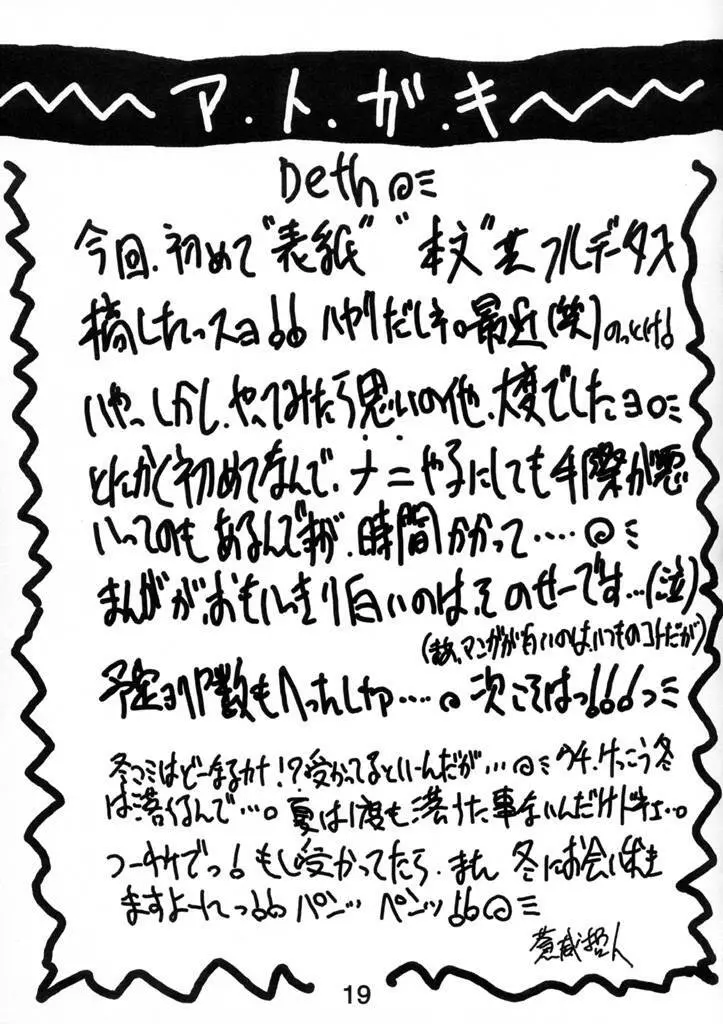 ア.ト.ガ.キ
Deth
今回、初めて"表紙""本文"共フルデータ入
稿したっスョ!! ハヤリだしネ。最近(笑)のっとけ!
いやっしかし、やってみたら思いの他、大変でしたョ。
とにかく初めてなんで、ナニやるにしても手際が悪
いってのもあるんですが、時間かかって……
まんがが、おもいっきり白いのは、そのせーです…(泣)
(まあ、マンガが白いのは、いつものコトだが)
予定ョリP数もへっちゃし……。次こそはっ!!!っ
冬コミはどーなるカナ!?受かってるといーんだが… ウチ、けっこう冬
は落くるんで…。夏は1度も落ちた事ないんだけドネェ…。
つーわけでっ!もし受かってたら、また冬にお会いしま
ますよーれっ!! パンッ パンッ!!
蒼威哲人
19